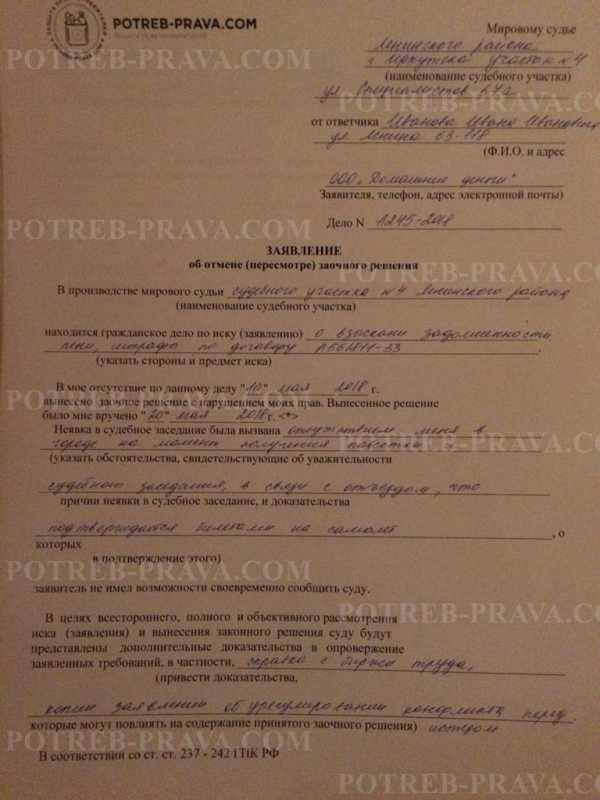 POTREB-PRAVA.COM
Мировому судье
Ленинского района
г. Иркутска участок №4
(наименование судебного участка)
ул. Специалистов 67а
от ответчика Иванова Ивана Ивановича
ул Ленина 63-118
(Ф.И.О. и адрес
ООО "Домашние деньги"
Заявителя, телефон, адрес электронной почты)
Дело N 1245-2018
ЗАЯВЛЕНИЕ
об отмене (пересмотре) заочного решения
В производстве мирового судьи судебного участка №4 Ленинского района
(наименование судебного участка)
находится гражданское дело по иску (заявлению) о взыскани задолженности,
пени, штрафа по договору
(указать стороны и предмет иска)
В мое отсутствие по данному делу "10" мая 2018 г.
вынесено заочное решение с нарушением моих прав. Вынесенное решение
было мне вручено "20" мая 2018 г. <*>
Неявка в судебное заседание была вызвана отсутствием меня в
городе на момент получения повестки
(указать обстоятельства, свидетельствующие об уважительности
судебного заседания, в связи с отъездом, что
причин неявки в судебное заседание, и доказательства
подтверждается билетами на самолет, о
которых
в подтверждение этого)
заявитель не имел возможности своевременно сообщить суду.
В целях всестороннего, полного и объективного рассмотрения
иска (заявления) и вынесения законного решения суду будут
представлены дополнительные доказательства в опровержение
заявленных требований, в частности, справка с биржи труда,
(привести доказательства,
копии заявлении об урегулировании конфликта перед
которые могут повлиять на содержание принятого заочного решения) истцом
В соответствии со ст. ст. 237 - 242 ГПК РФ
POTREB-PRAVA.COM
POTREB-PRAVA.COM
POTREB-PRAVA.COM
POTREB-PRAVA.COM
POTREB-PRAVA.COM
POTREB-PRAVA.COM
POTREB-PRAVA.COM
POTREB-PRAVA.COM
POTREB-PRAVA.COM
POTREB-PRAVA.COM